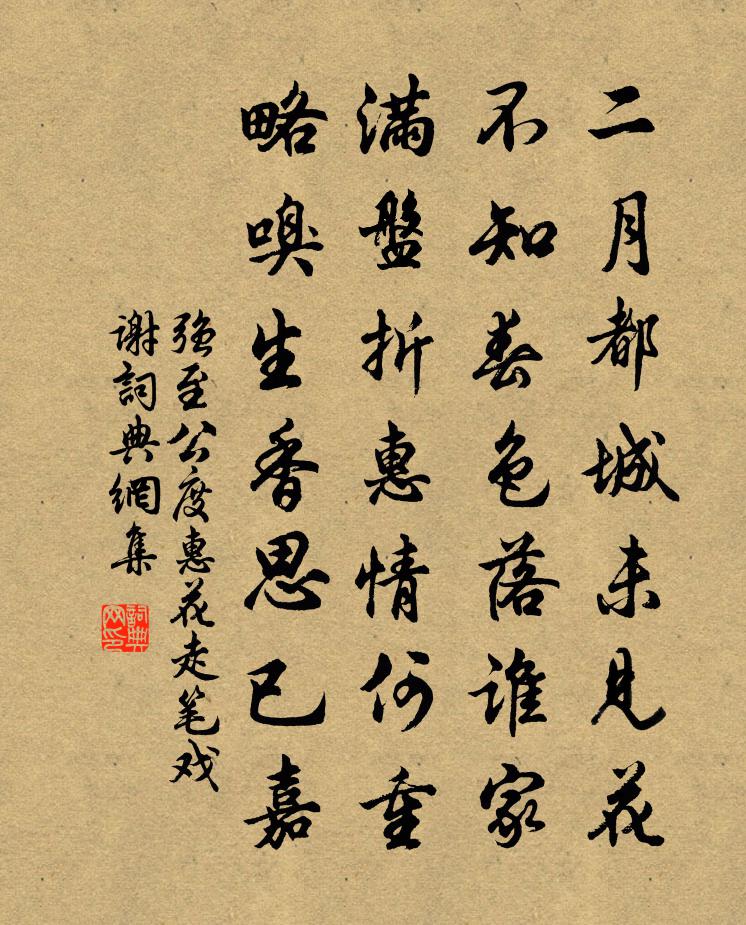 二月都城未见花
不知春色落谁家
满盘折惠情何重
略嗅生香思已嘉
强至公度惠花走笔戏
谢詞典網集
詞典
网印